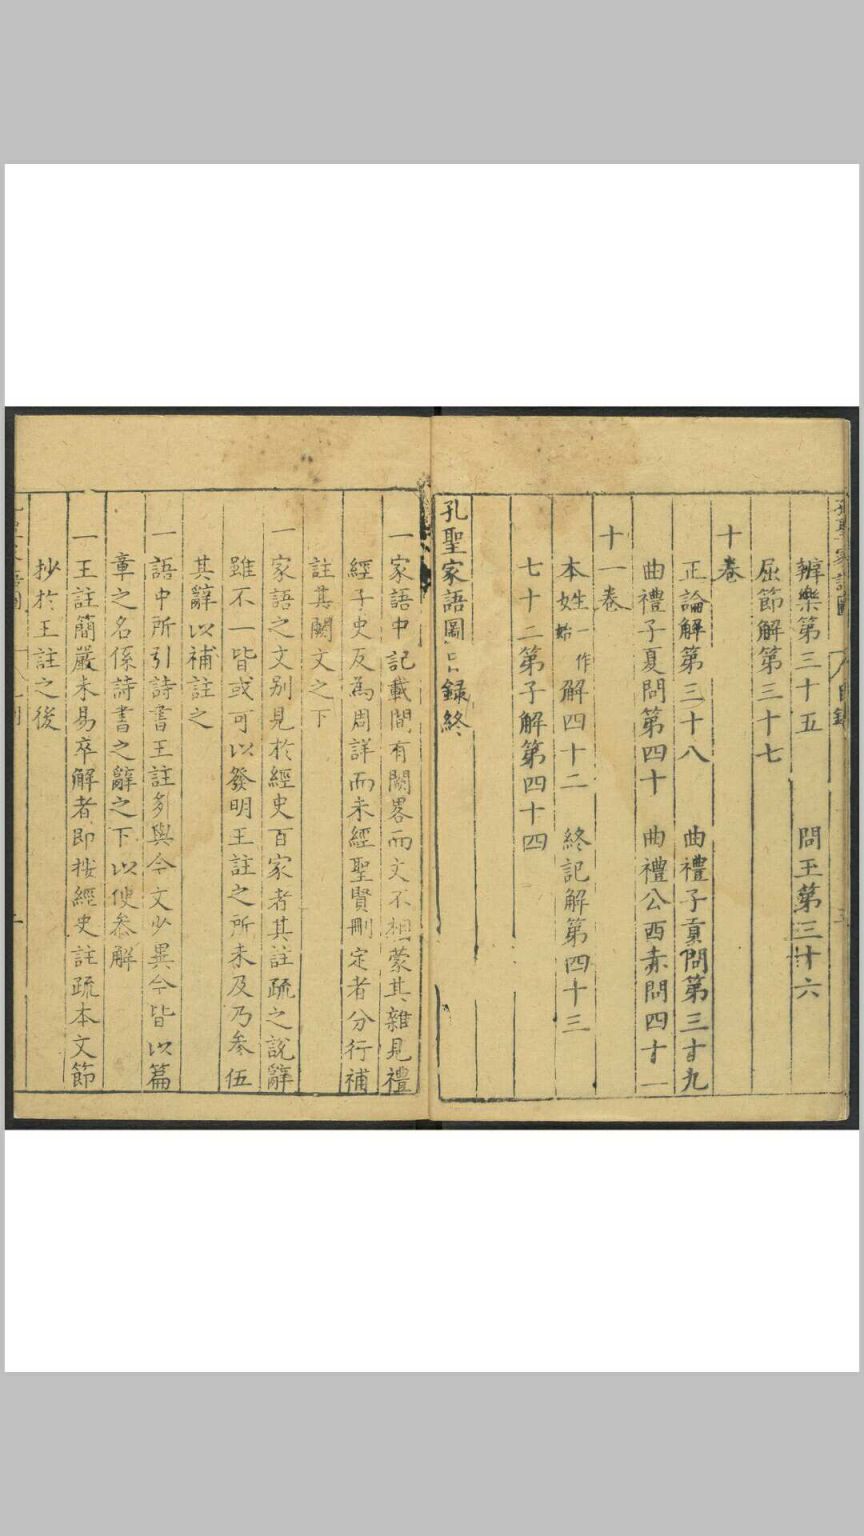 辨樂第三十五　問玉第三十六
屈節解第三十七
十卷
正論解第三十八　曲禮子貢問第三十九
曲禮子夏問第四十　曲禮公西赤問四十一
十一卷
本姓一作姓解四十二　終記解第四十三
七十二第子解第四十四
孔聖家語圖目録終
一家語中記載間有闕畧而文不相蒙其雜見禮
經子史反爲周詳而未經聖賢刪定者分行補
註其闕文之下
一家語之文别見於經史百家者其註疏之説辭
雖不一皆或可以發明王註之所未及乃叅伍
其辭以補註之
一語中所引詩書王註多與今文少異今皆以篇
章之名係詩書之辭之下以便叅解
一王註簡嚴未易卒解者即按經史註疏本文節
抄於王註之後